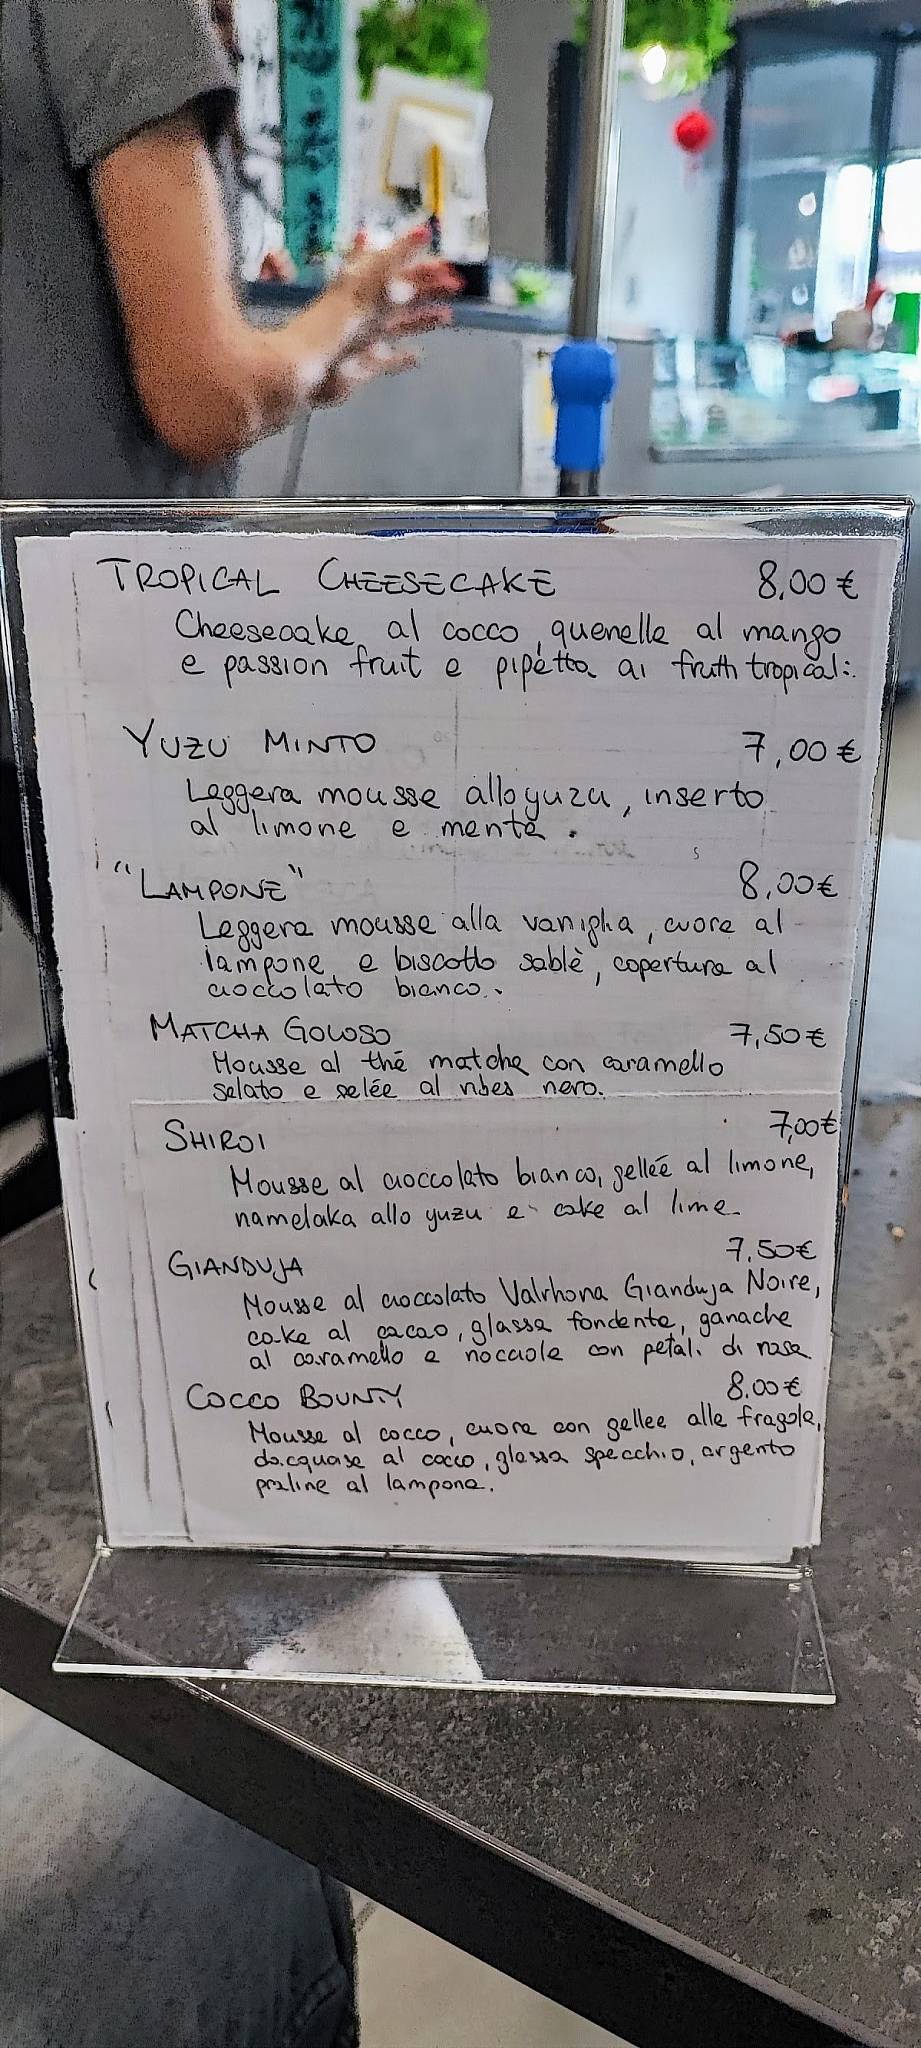 TROPICAL CHEESECAKE 8,00 €
Cheesecake al cocco, quenelle al mango
e passion fruit e pipetta ai frutti tropicali.
YUZU MINTO 7,00 €
Leggera mousse allo yuzu, inserto
al limone e menta.
"LAMPONE" 8,00 €
Leggera mousse alla vaniglia, cuore al
lampone e biscotto sablè, copertura al
cioccolato bianco.
MATCHA GOLOSO 7,50 €
Mousse al thé matcha con caramello
salato e gelée al ribes nero.
SHIROI 7,00 €
Mousse al cioccolato bianco, gelleé al limone,
namelaka allo yuzu e cake al lime.
GIANDUJA 7,50 €
Mousse al cioccolato Valrhona Gianduja Noire,
cake al cacao, glassa fondente, ganache
al caramello e nocciole con petali di rosa
COCCO BOUNTY 8,00 €
Mousse al cocco, cuore con gellee alle fragole,
dacquase al cocco, glassa specchio, argento
praline al lampone.